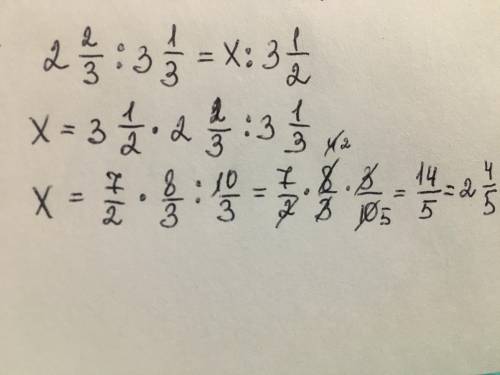 2 2/3 : 3 1/3 = x : 3 1/2
x = 3 1/2 · 2 2/3 : 3 1/3
x = 7/2 · 8/3 : 10/3 = 7/2 · 8/3 · 3/10 4 2 5 = 14/5 = 2 4/5